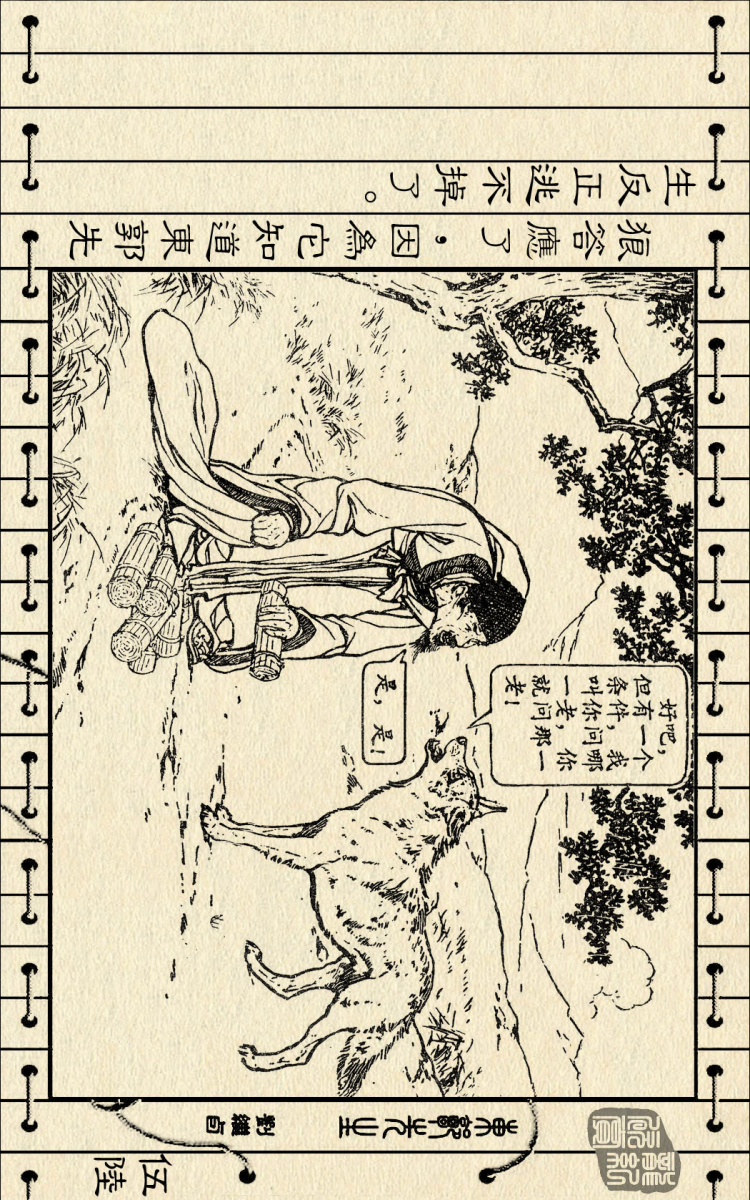 狼答應了，因為它知道東郭先
生反正逃不掉了。
好吧，
但有一个
条件，我
叫你问哪
一老，你
就问那一
老！
是，是！
東郭先生
劉繼卣
伍陸